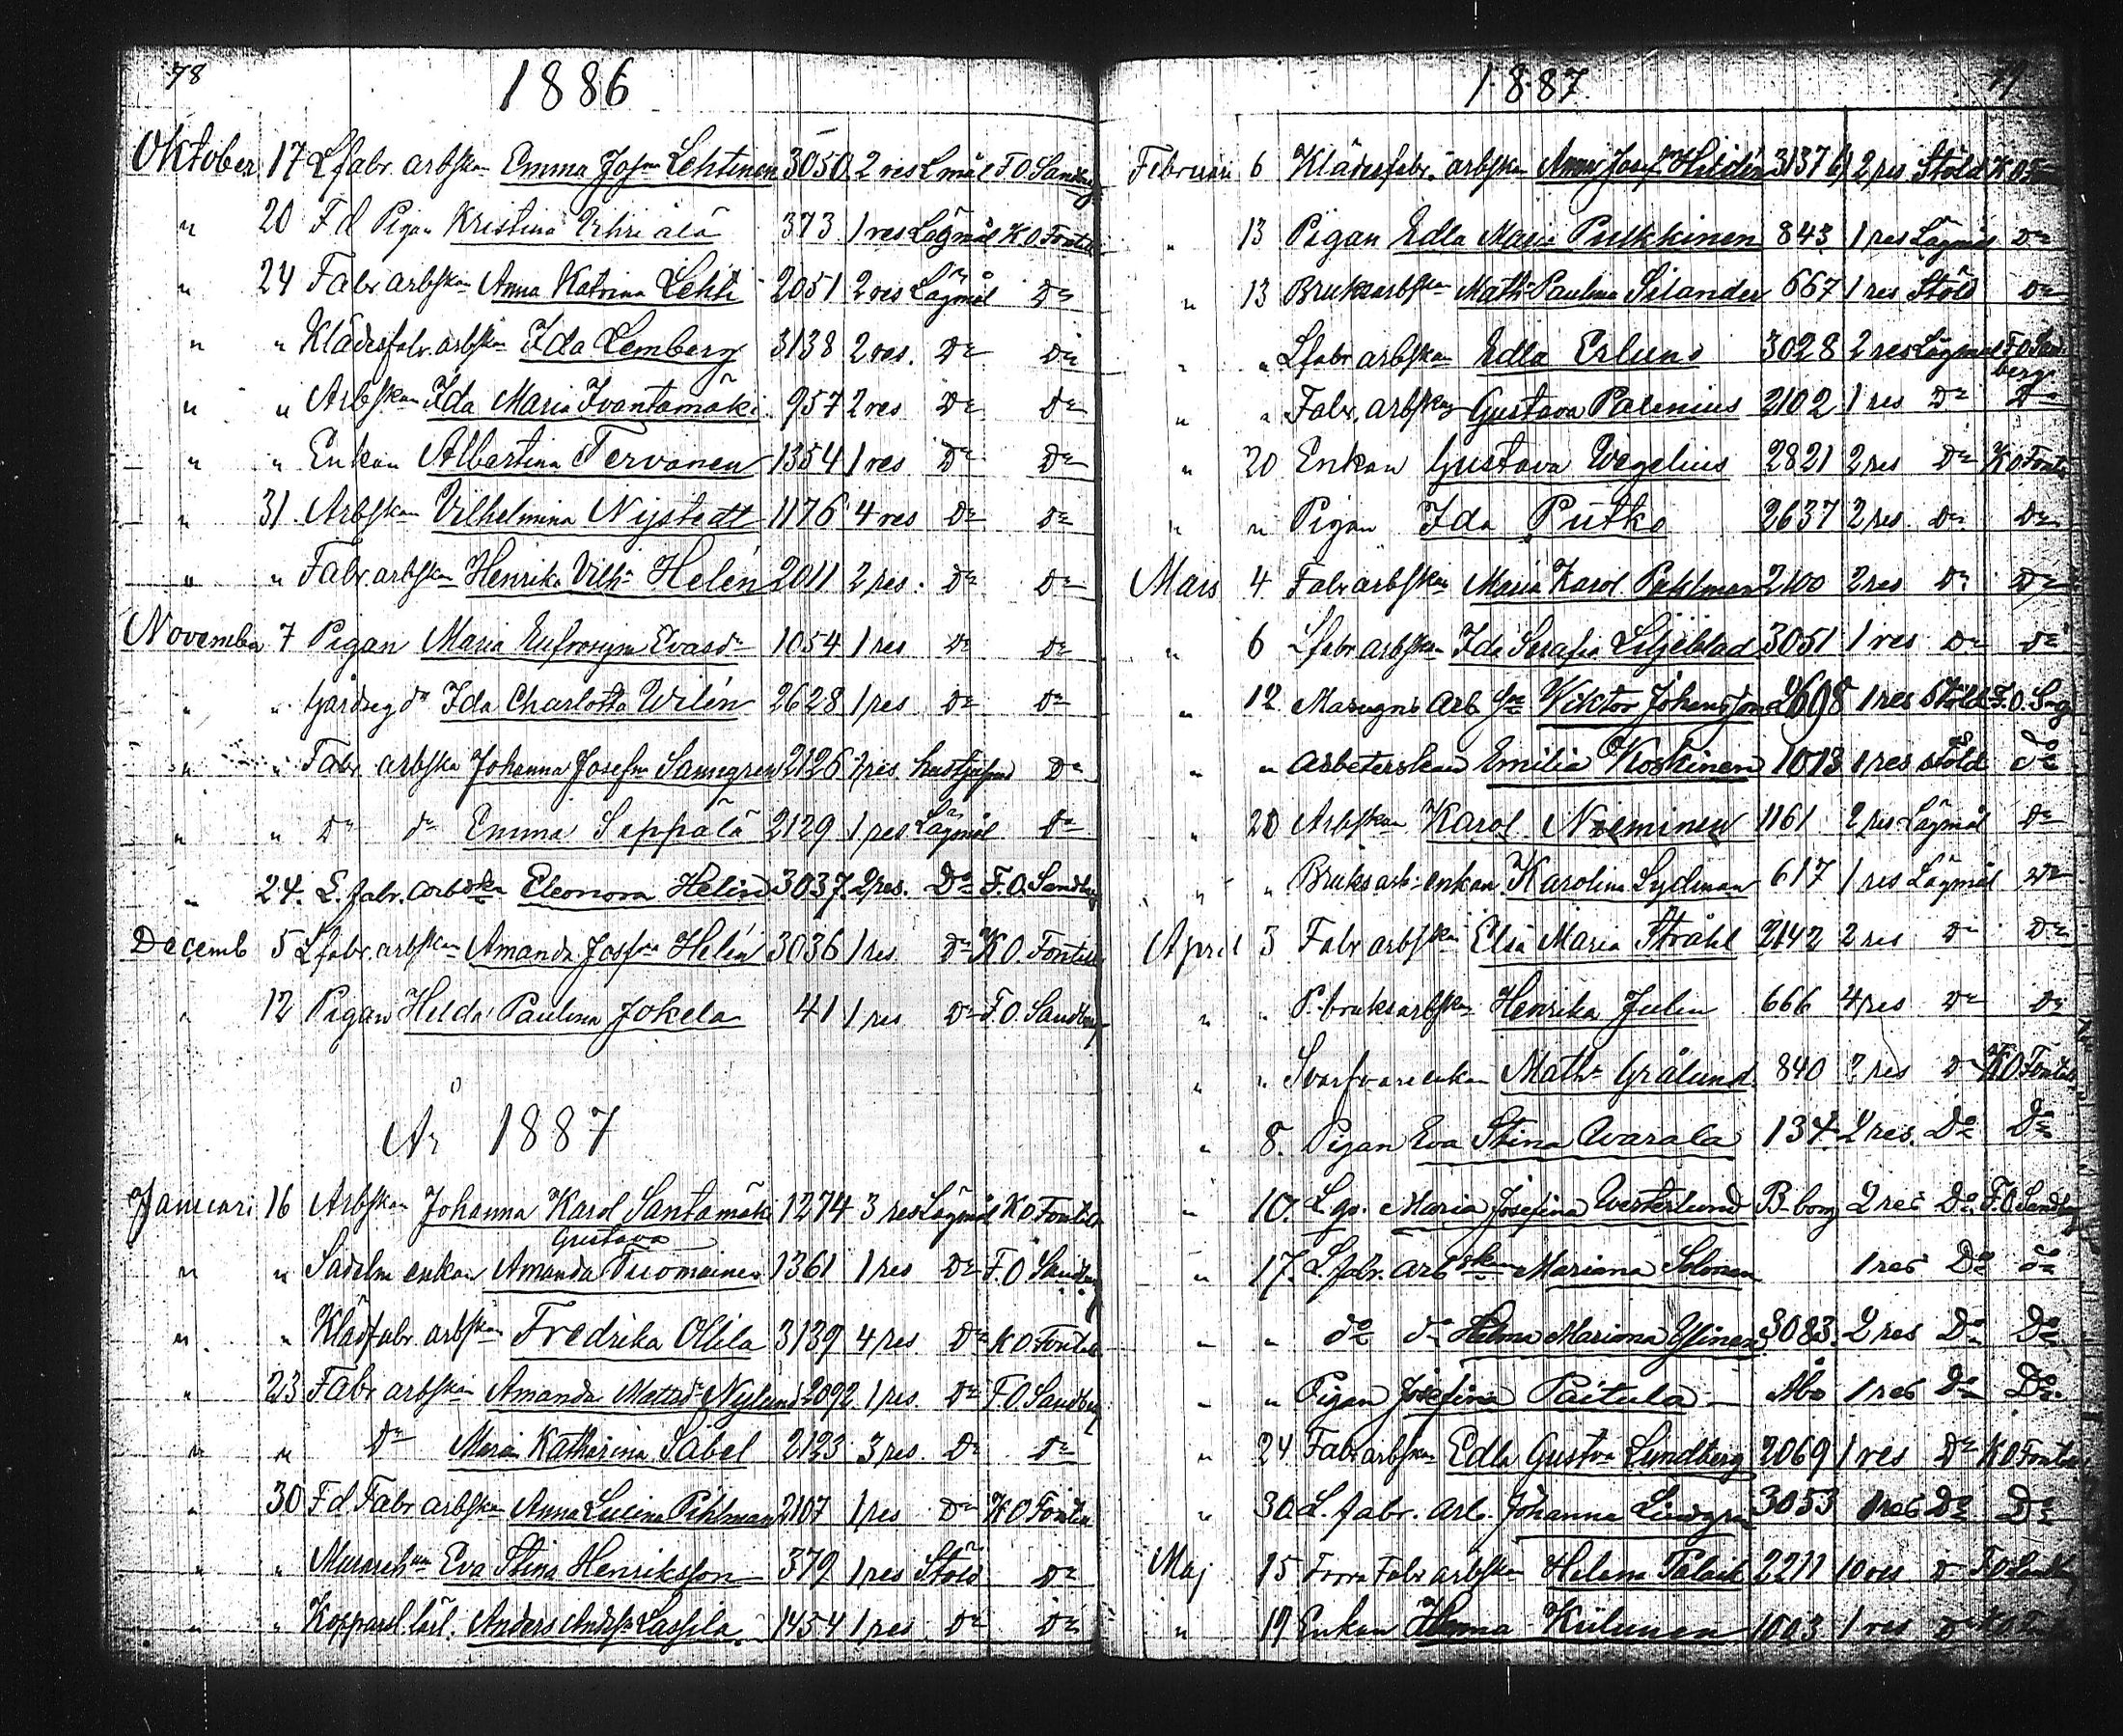 78
1886
Oktober 17 Lfabr. arbskan Emma Josfna Lehtinen 3050 2 res Lmål F O Sandberg
" 20 F d Pigan Kristina 373 1 res Lägmål K O Fontell
" 24 Fabr arbskan Anna Katrina Lehti 2051 2 res Lägmål Do
" " Klädesfabr. arbskan Ida Lemberg 3138 2 res. Do Do
" " Arbskan Ida Maria Ivantamäki 957 2 res Do Do
" " Enkan Albertina Tervonen 1354 1 res Do Do
" 31 Arbskan Vilhelmina Nystedt 1176 4 res Do Do
" " Fabr arbskan Henrika Vilha Helén 2011 2 res. Do Do
November 7 Pigan Maria Eufrosyna Evasdr 1054 1 res Do Do
" " Ida Charlotta Wilén 2628 1 res Do Do
" " Fabr arbska Johanna Josefna 2126 res Do
" " Do do Emma Seppälä 2129 1 res Lägmål Do
" 24. L. fabr. arbska Eleonora Helin 3037. 2 res. Do F. O. Sandberg
Decemb 5 Lfabr. arbskan Amanda Josfna Helén 3036 1 res. Do K O. Fontell
" 12 Pigan Hilda Paulina Jokela 41 1 res Do F. O. Sandberg
Ar 1887
Januari 16 Arbskan Johanna Karol Santamäki 1274 3 res Lägmål K O Fontell
Gustava
" " Sadelm enkan Amanda Tuomainen 1361 1 res Do F. O Sandberg
" " Klädfabr. arbskan Fredrika Ollila 3139 4 res Do K O. Fontell
" 23 Fabr arbskan Amanda Matsdr Nylund 2092 1 res Do F. O Sandberg
" " Do Maria Katharina Sabel 2123 3 res. Do Do
" 30 F d Fabr arbskan Anna Lucina Pihlman 2107 1 res Do K O Fontell
" " Eva Stina Henriksson 379 1 res Stöld Do
" " Kopparsl lärl. Anders Andrss Lassila 1454 1 res Do Do
1887
Februari 6 Klädesfabr. arbskan Anna Josef Hildén 3137 2 res Stöld K O
" 13 Pigan Edla Maria Pukkinen 843 1 res Lägmål Do
" 13 Bruksarbskan Math. Paulina Silander 667 1 res Stöld Do
" " Lfabr arbskan Edla Erlund 3028 2 res Lägmål F O Sand-
berg
" " Fabr. arbskan Gustava Palenius 2102 1 res Do Do
" 20 Enkan Gustava Wegelius 2821 2 res Do K O Fontell
" " Pigan Ida Putko 2637 2 res. Do Do
Mars 4 Fabr arbskan Maria Karol. Pahlman 2100 2 res Do Do
" 6 Lfabr arbskan Ida Serafia Liljeblad 3051 1 res Do Do
" 12 Masugns Arb Viktor Johansson 2698 1 res Stöld F. O. Sbg
" " Arbeterskan Emilia Koskinen 1013 1 res stöld do
" 20 Arbskan Karol. Nieminen 1161 2 res Lägmål Do
" " Bruksarb. enkan Karolina Lydman 617 1 res Lägmål Do
April 3 Fabr arbskan Elsa Maria Ståhl 2142 2 res Do Do
" " P. bruksarbskan Henrika Julin 666 4 res Do Do
" " Svarfvare enkan Matha Grålund 840 2 res Do K O Fontell
" 8. Pigan Eva Stina Warala 134 2 res. Do Do
" 10. Maria Josefina Westerlund B-borg 2 res Do F. O. Sandberg
" 17. L. fabr. arbskan Mariana Solonen 1 res Do do
" " do do Helma Mariana Ylinen 3083. 2 res Do Do
" " Pigan Josefina Paitula Åbo 1 res Do Do
" 24 Fabr arbskan Edla Gustva Lundberg 2069 1 res Do K O Fontell
" 30 L. fabr. arb. Johanna Lindgren 3053 1 res Do Do
Maj 15 Förra Fabr arbskan Helena 2211 10 res Do F O Sandberg
" 19 Enkan Kiilunen 1003 1 res Do K O